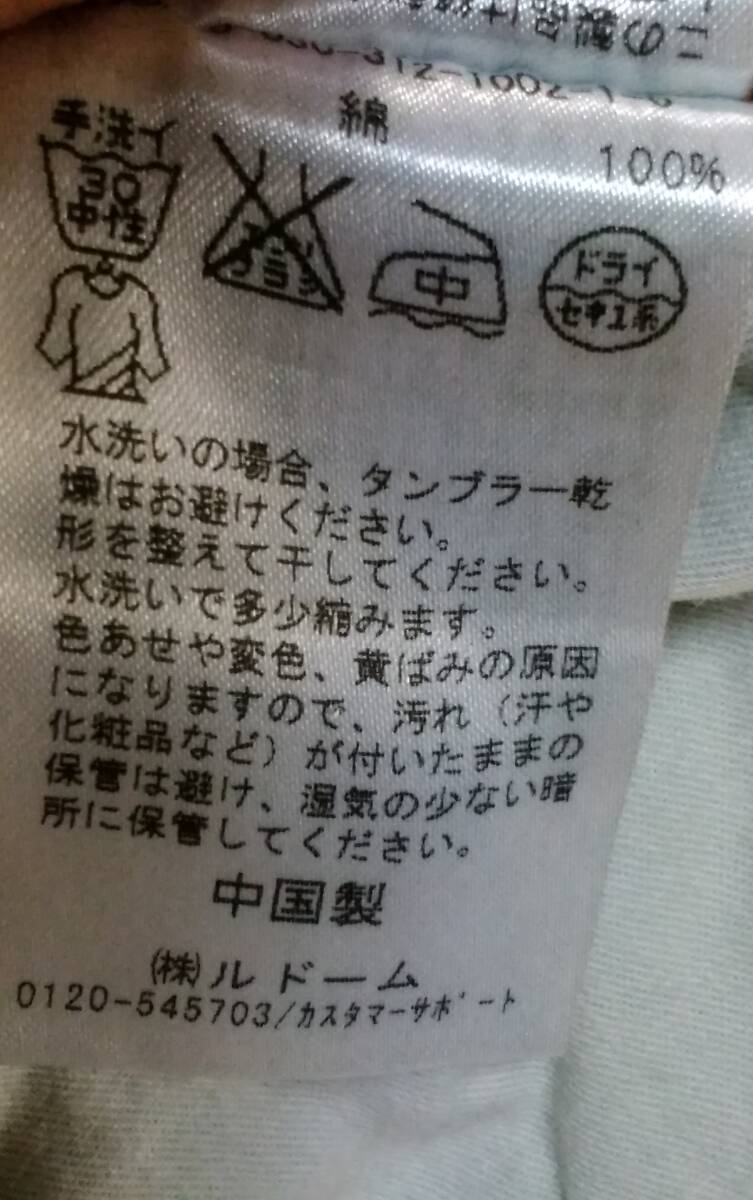 綿 100%
手洗イ
30
中性
エンソサラシ
中
ドライ
セキユ系
水洗いの場合、タンブラー乾
燥はお避けください。
形を整えて干してください。
水洗いで多少縮みます。
色あせや変色、黄ばみの原因
になりますので、汚れ（汗や
化粧品など）が付いたままの
保管は避け、湿気の少ない暗
所に保管してください。
中国製
(株)ルドーム
0120-545703/カスタマーサポート